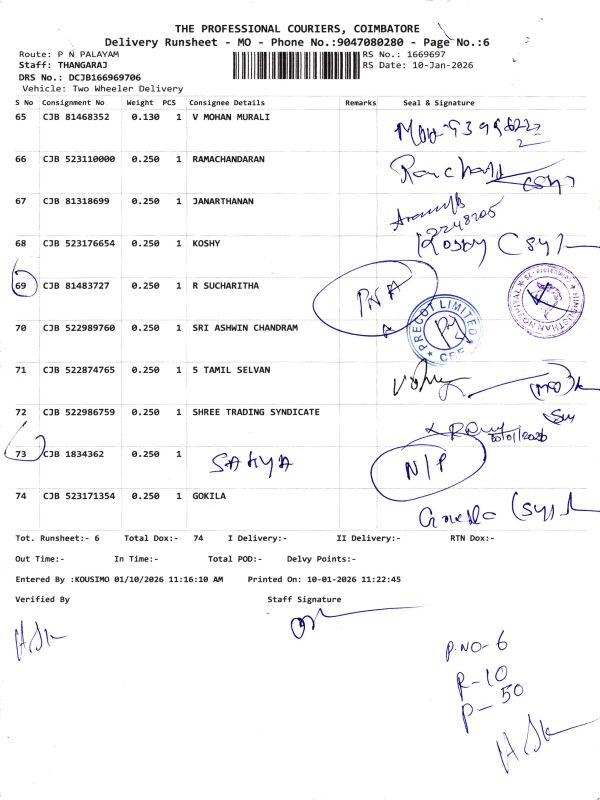 THE PROFESSIONAL COURIERS, COIMBATORE
Delivery Runsheet - MO - Phone No.:9047080280 - Page No.:6
Route: P N PALAYAM
RS No.: 1669697
Staff: THANGARAJ
RS Date: 10-Jan-2026
DRS No.: DCJB166969706
Vehicle: Two Wheeler Delivery
S No Consignment No Weight PCS Consignee Details Remarks Seal & Signature
65 CJB 81468352 0.130 1 V MOHAN MURALI
66 CJB 523110000 0.250 1 RAMACHANDARAN
67 CJB 81318699 0.250 1 JANARTHANAN
68 CJB 523176654 0.250 1 KOSHY
69 CJB 81483727 0.250 1 R SUCHARITHA PNA
70 CJB 522989760 0.250 1 SRI ASHWIN CHANDRAM
PRECOT LIMITED
71 CJB 522874765 0.250 1 S TAMIL SELVAN
72 CJB 522986759 0.250 1 SHREE TRADING SYNDICATE
73 CJB 1834362 0.250 1 SAHYA N/P
74 CJB 523171354 0.250 1 GOKILA
Tot. Runsheet:- 6 Total Dox:- 74 I Delivery:- II Delivery:- RTN Dox:-
Out Time:- In Time:- Total POD:- Delvy Points:-
Entered By :KOUSIMO 01/10/2026 11:16:10 AM Printed On: 10-01-2026 11:22:45
Verified By Staff Signature
P.NO-6
R-10
P-50